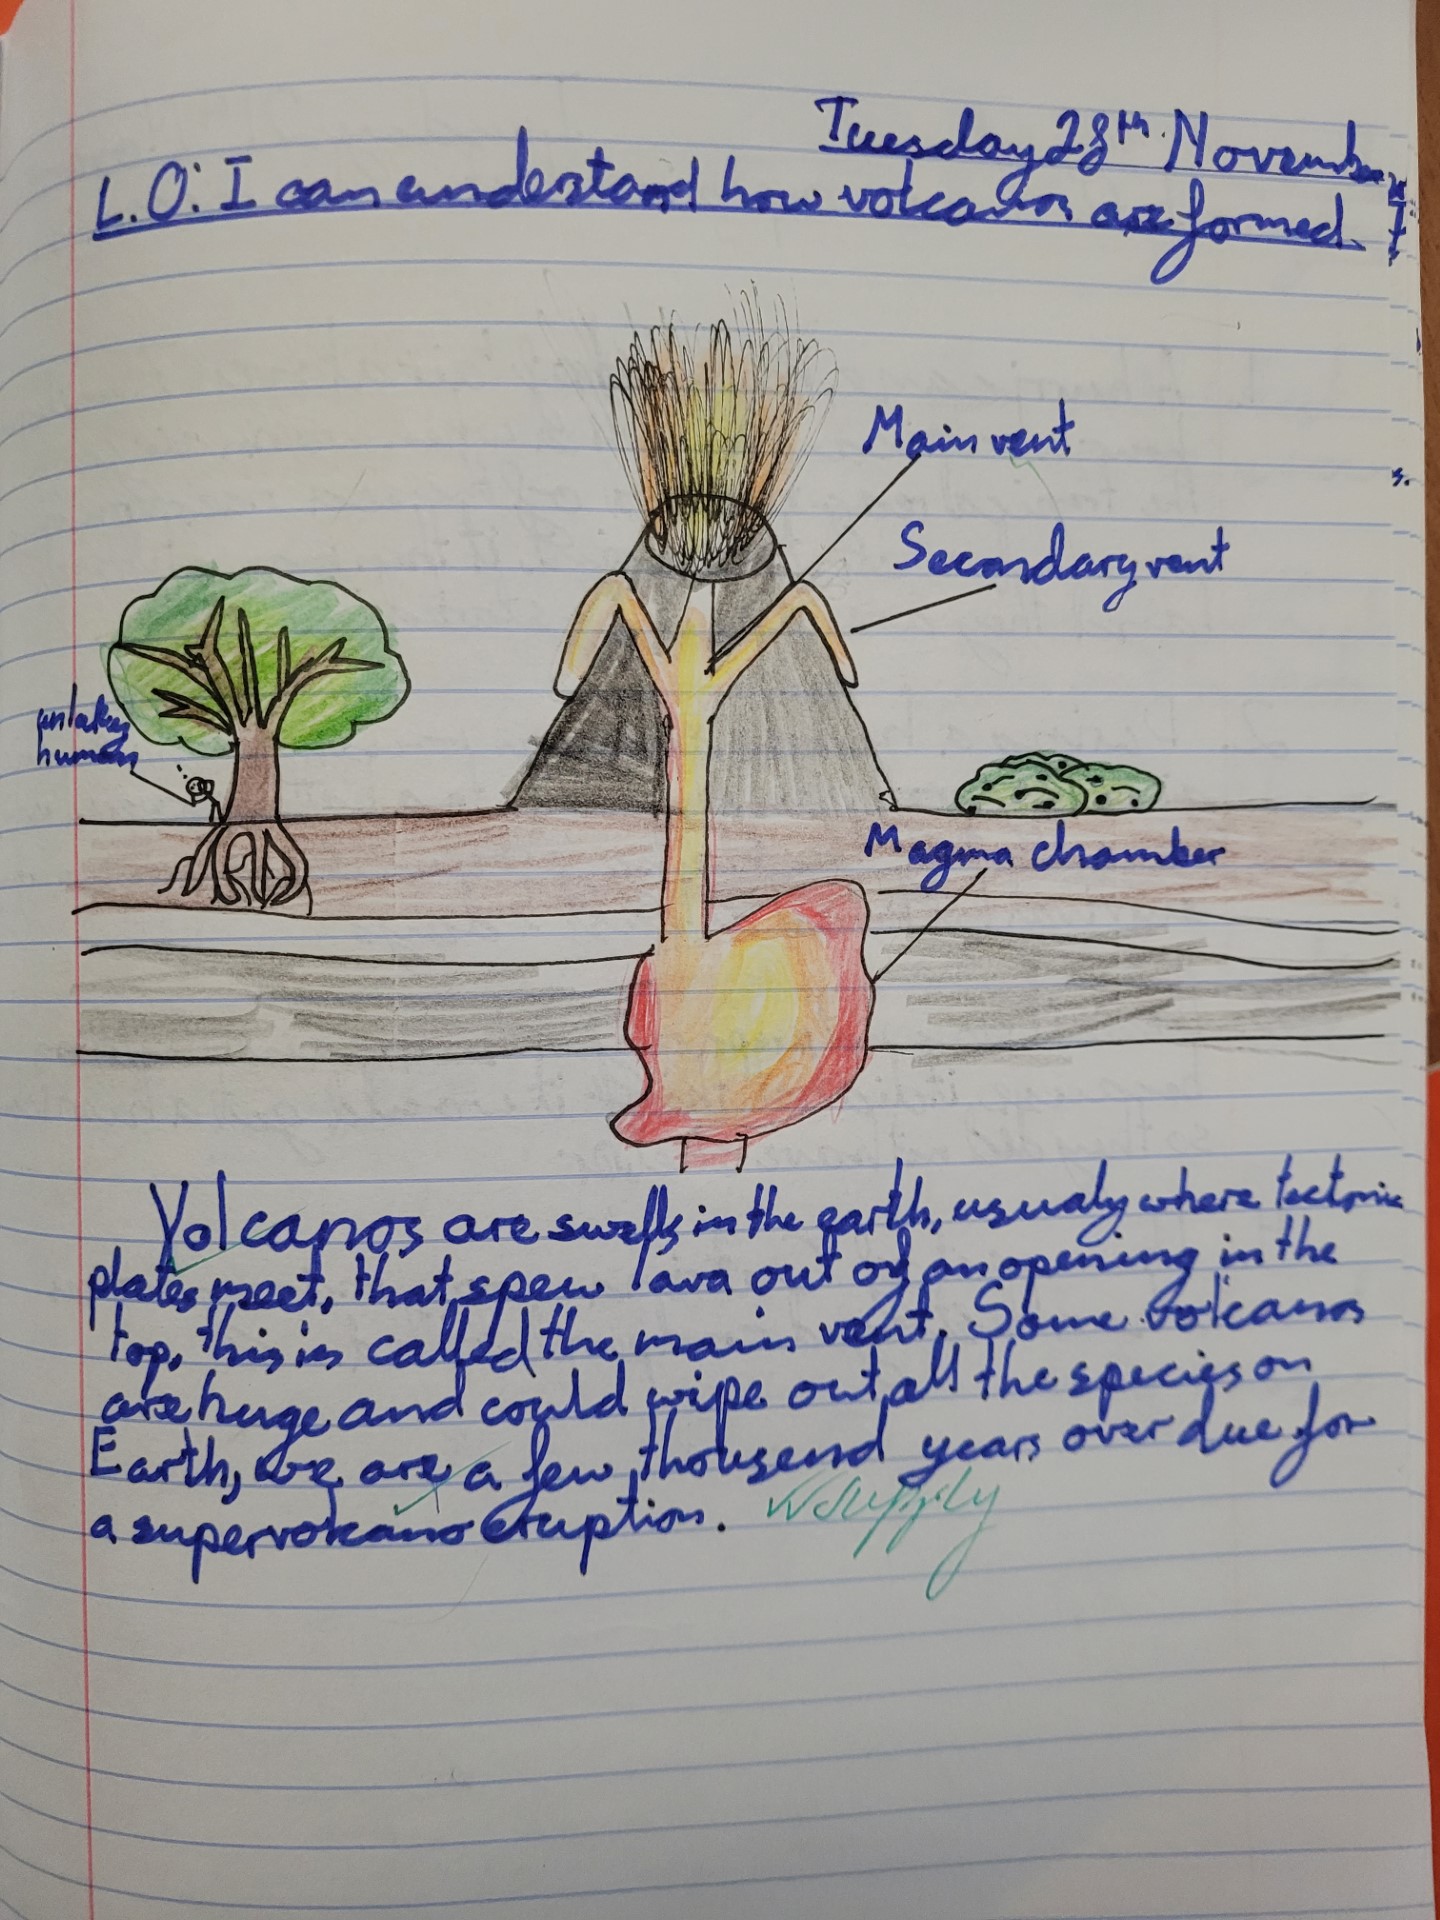 Tuesday 28th November
L.O: I can understand how volcanos are formed.
Main vent
Secondary vent
unlakey
human
Magma chamber
Volcanos are swells in the earth, usualy where tectonic
plates meet, that spew lava out of an opening in the
top, this is called the main vent. Some volcanos
are huge and could wipe out all the species on
Earth, we are a few thousend years over due for
a supervolcano eruption.